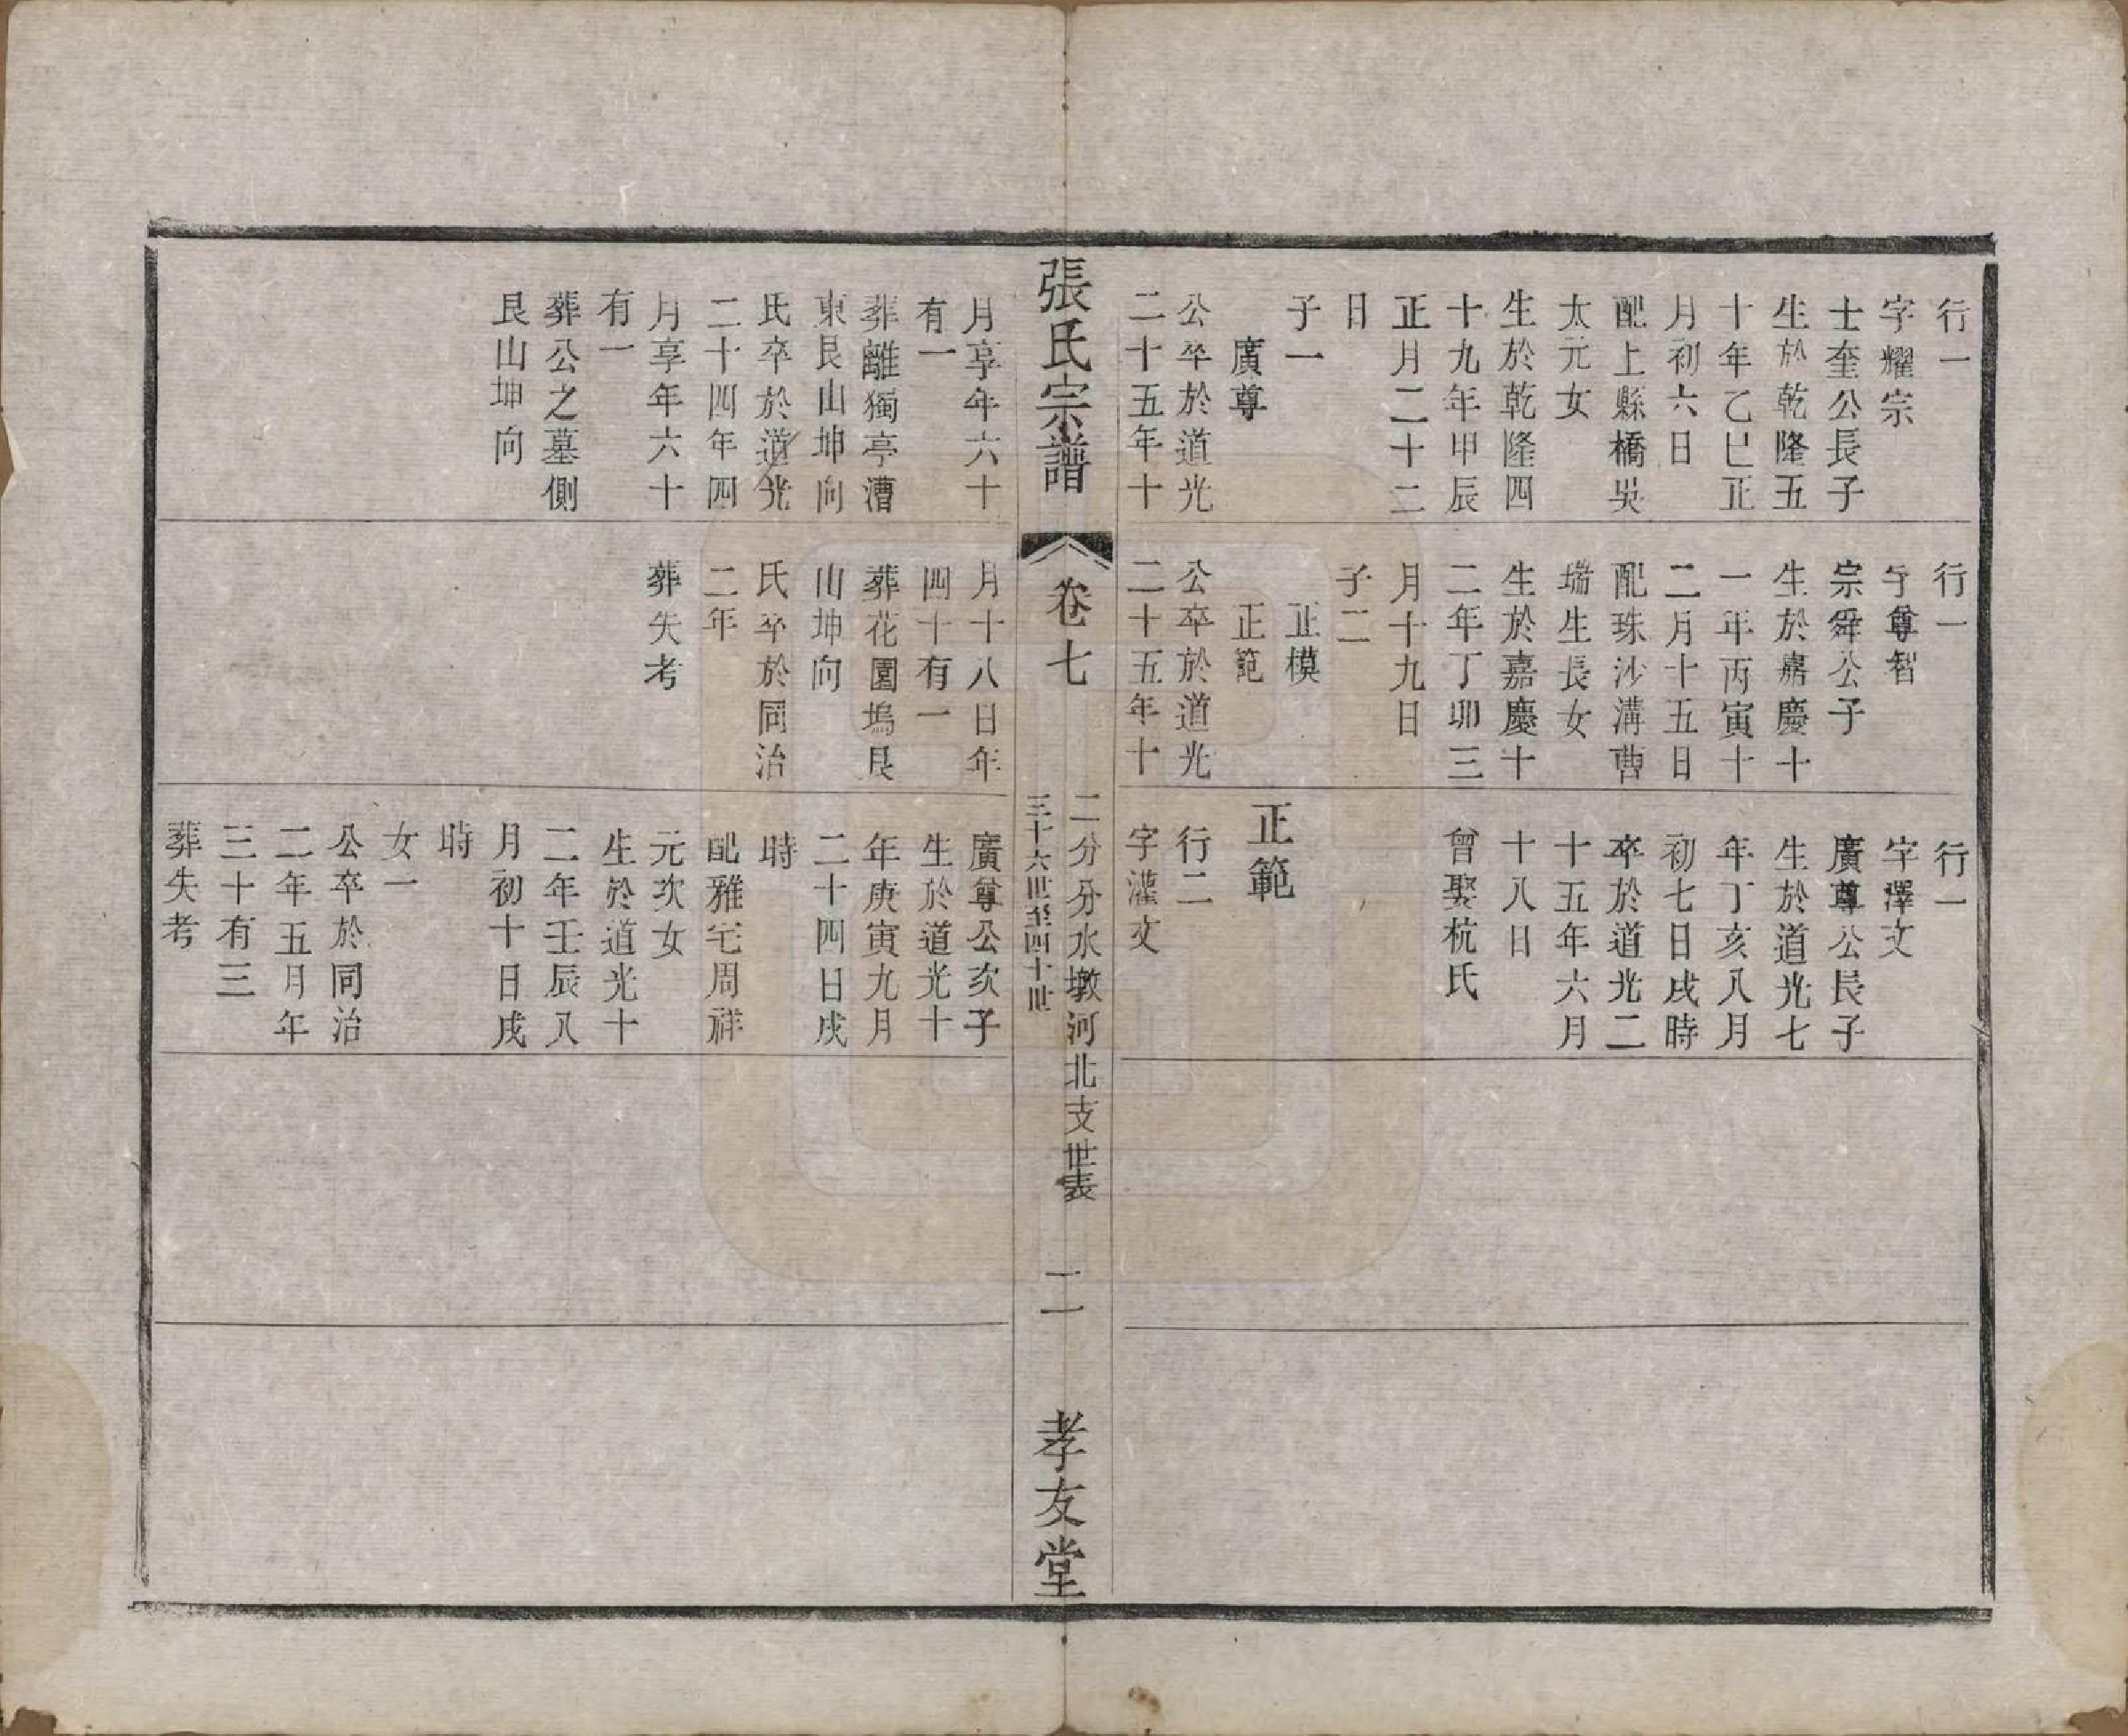 行一
字耀宗
士奎公長子
生於乾隆五
十年乙巳正
月初六日
配上縣橋吳
太元女
生於乾隆四
十九年甲辰
正月二十二
日
子一
廣尊
公卒於道光
二十五年十
行一
字尊智
宗舜公子
生於嘉慶十
一年丙寅十
二月十五日
配珠沙溝曹
瑞生長女
生於嘉慶十
二年丁卯三
月十九日
子二
正模
正範
公卒於道光
二十五年十
行一
字澤文
廣尊公長子
生於道光七
年丁亥八月
初七日戌時
卒於道光二
十五年六月
十八日
曾娶杭氏
正範
行二
字灌文
張氏宗譜
卷七
二分分水墩河北支世表
三十六世至四十世
二
孝友堂
月享年六十
有一
葬離獨亭漕
東艮山坤向
氏卒於道光
二十四年四
月享年六十
有一
葬公之墓側
艮山坤向
月十八日年
四十有一
葬花園塢艮
山坤向
氏卒於同治
二年
葬失考
廣尊公次子
生於道光十
年庚寅九月
二十四日戌
時
配雅宅周祥
元次女
生於道光十
二年壬辰八
月初十日戌
時
女一
公卒於同治
二年五月年
三十有三
葬失考